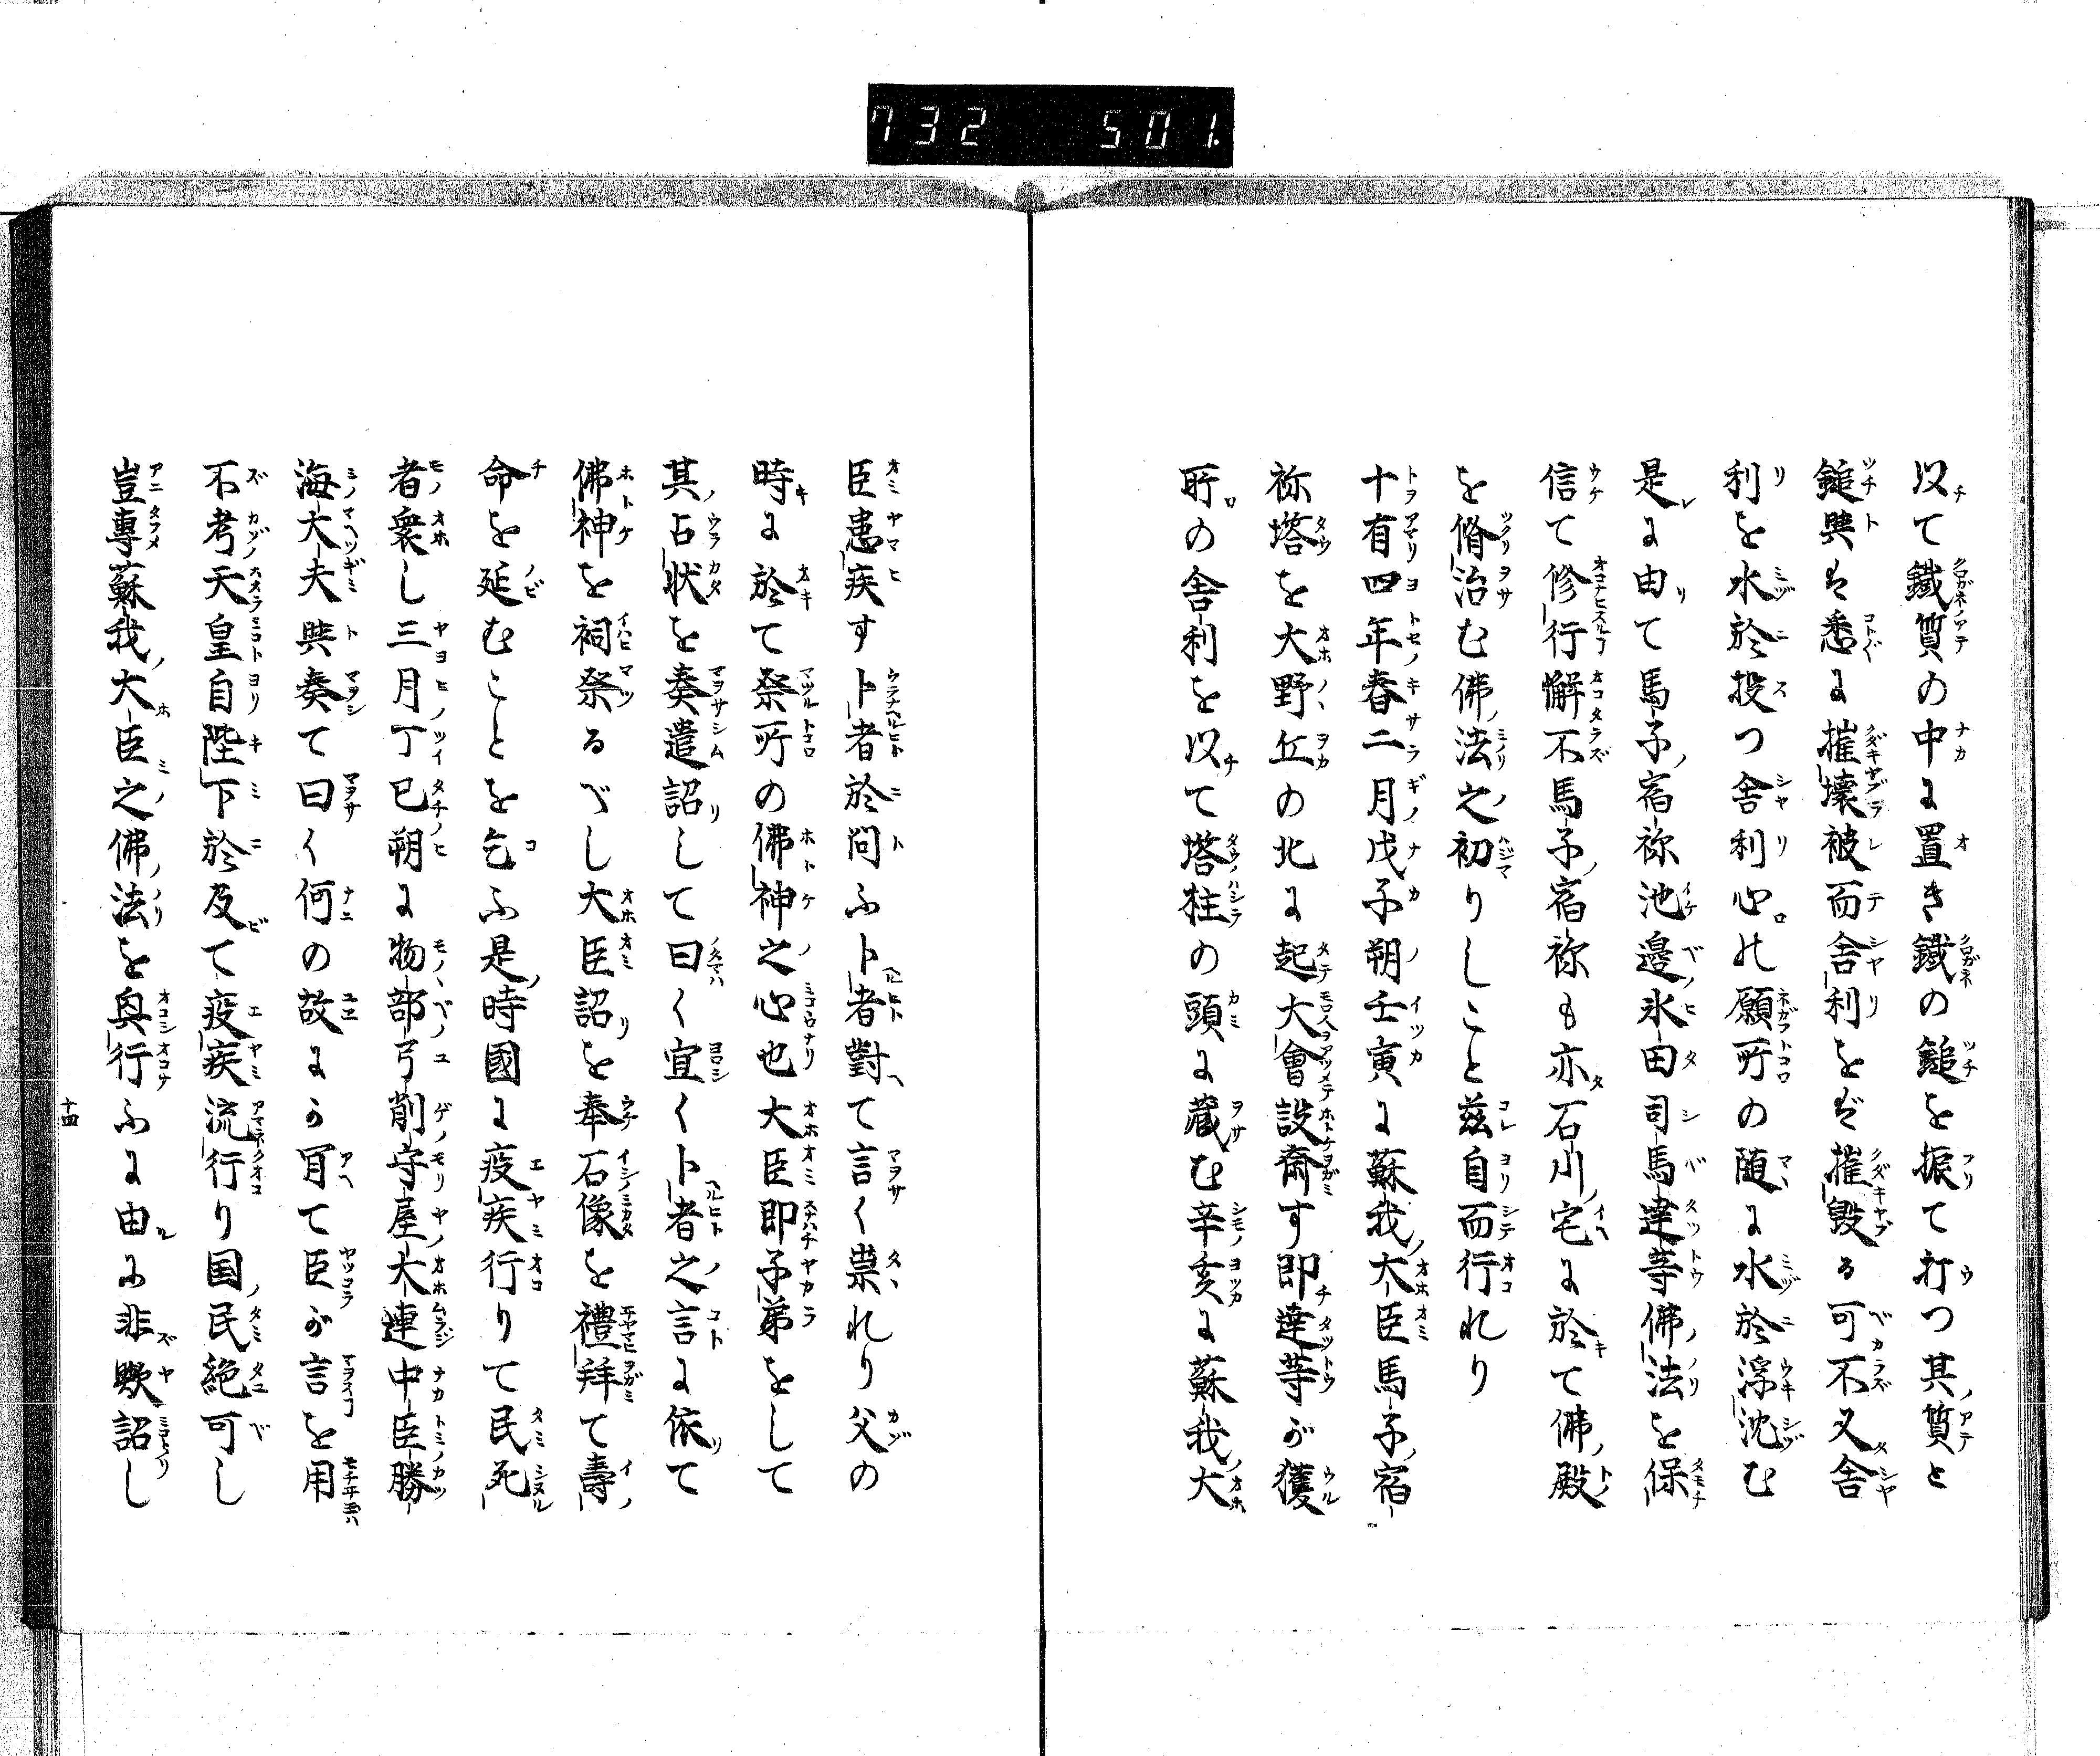 732 501.
以て鐵質の中に置き鐵の鎚を振て打つ其質と
鎚與は悉に摧壞被而舍利をば摧毀る可不又舍
利を水於投つ舍利心の願所の随に水於浮沈む
是に由て馬子宿祢池邊氷田司馬達等佛法を保
信て修行懈不馬子宿祢も亦石川宅に於て佛殿
を脩治む佛法之初りしこと茲自而行れり
十有四年春二月戊子朔壬寅に蘇我大臣馬子宿
祢塔を大野丘の北に起大會設齋す即達等が獲
所の舍利を以て塔柱の頭に藏む辛亥に蘇我大
臣患疾す卜者於問ふ卜者對て言く祟れり父の
時に於て祭所の佛神之心也大臣即子弟をして
其占状を奏遣詔して曰く宜く卜者之言に依て
佛神を祠祭るべし大臣詔を奉石像を禮拜て壽
命を延むことを乞ふ是時國に疫疾行りて民死
者衆し三月丁巳朔に物部弓削守屋大連中臣勝
海大夫與奏て曰く何の故にか肯て臣が言を用
不考天皇自陛下於及て疫疾流行り国民絶可し
豈專蘇我大臣之佛法を興行ふに由に非歟詔し
十四